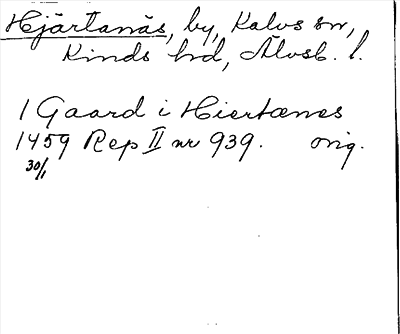 Hjärtanäs, by, Kalvs sn,
Kinds hd, Älvsb. l.
1 Gaard i Hiertænes
1459 Rep II nr 939. orig.
30/1